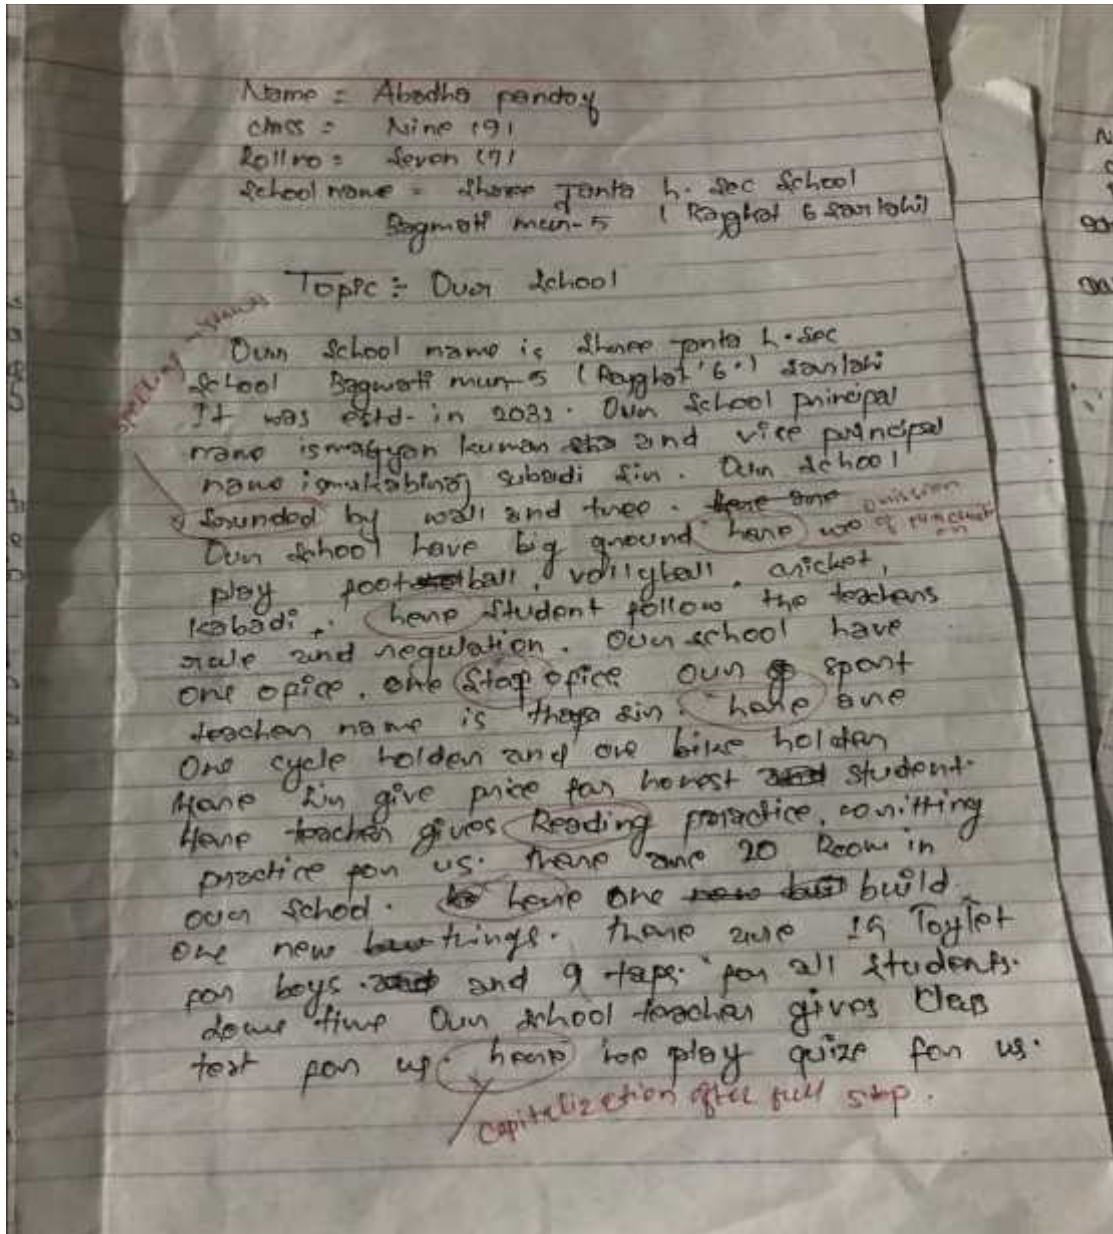 Name = Abadha pandey
class = Nine (9)
Roll no = Seven (7)
School name = Shree Janta h. Sec School
Bagmati mun-5 ( Rajghat 6 Sarlahi)
Topic :- Our School
spelling
Our School name is Shree Janta h. Sec
School Bagmati mun-5 (Rajghat '6') Sarlahi
It was estd- in 2032. Our School principal
name is kumar and vice principal
name is subadi sir. Our School
sounded by wall and tree.
omission of punctuation
Our School have big ground here we
play football, vollyball, cricket,
kabadi. here Student follow the teachers
rule and regulation. Our school have
one opice, one Stap opice our sport
teacher name is thapa sir. here are
One cycle holder and one bike holder
Here Sir give price for honest student.
Here teacher gives Reading practice, writting
practice for us. there are 20 Room in
our School. here one build
one new things. there are 19 Toylet
for boys and 9 taps. for all Students.
Some time Our School teacher gives Class
test for us. here we play quize for us.
Capitalization after full stop.